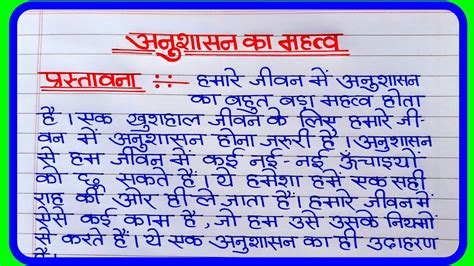 अनुशासन का महत्व
प्रस्तावना :- हमारे जीवन में अनुशासन
का बहुत बड़ा महत्व होता
है । एक खुशहाल जीवन के लिए हमारे जी-
वन में अनुशासन होना जरुरी है । अनुशासन
से हम जीवन में कई नई-नई ऊंचाइयों
को छू सकते हैं । ये हमेशा हमें एक सही
राह की ओर ही ले जाता है । हमारे जीवन में
ऐसे कई काम हैं , जो हम उसे उसके नियमों
से करते हैं । ये एक अनुशासन का ही उदाहरण